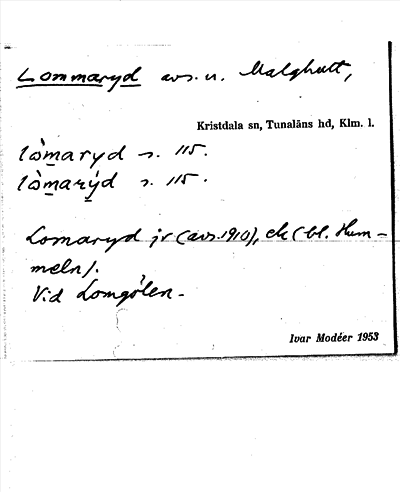 Lommaryd avs. u. Malghult,
Kristdala sn, Tunaläns hd, Klm. l.
lòmaryd s. 115.
lòmarýd s. 115.
Lomaryd jr (avs. 1910), ek (bl. Hum-
meln).
Vid Lomgölen.
Ivar Modéer 1953